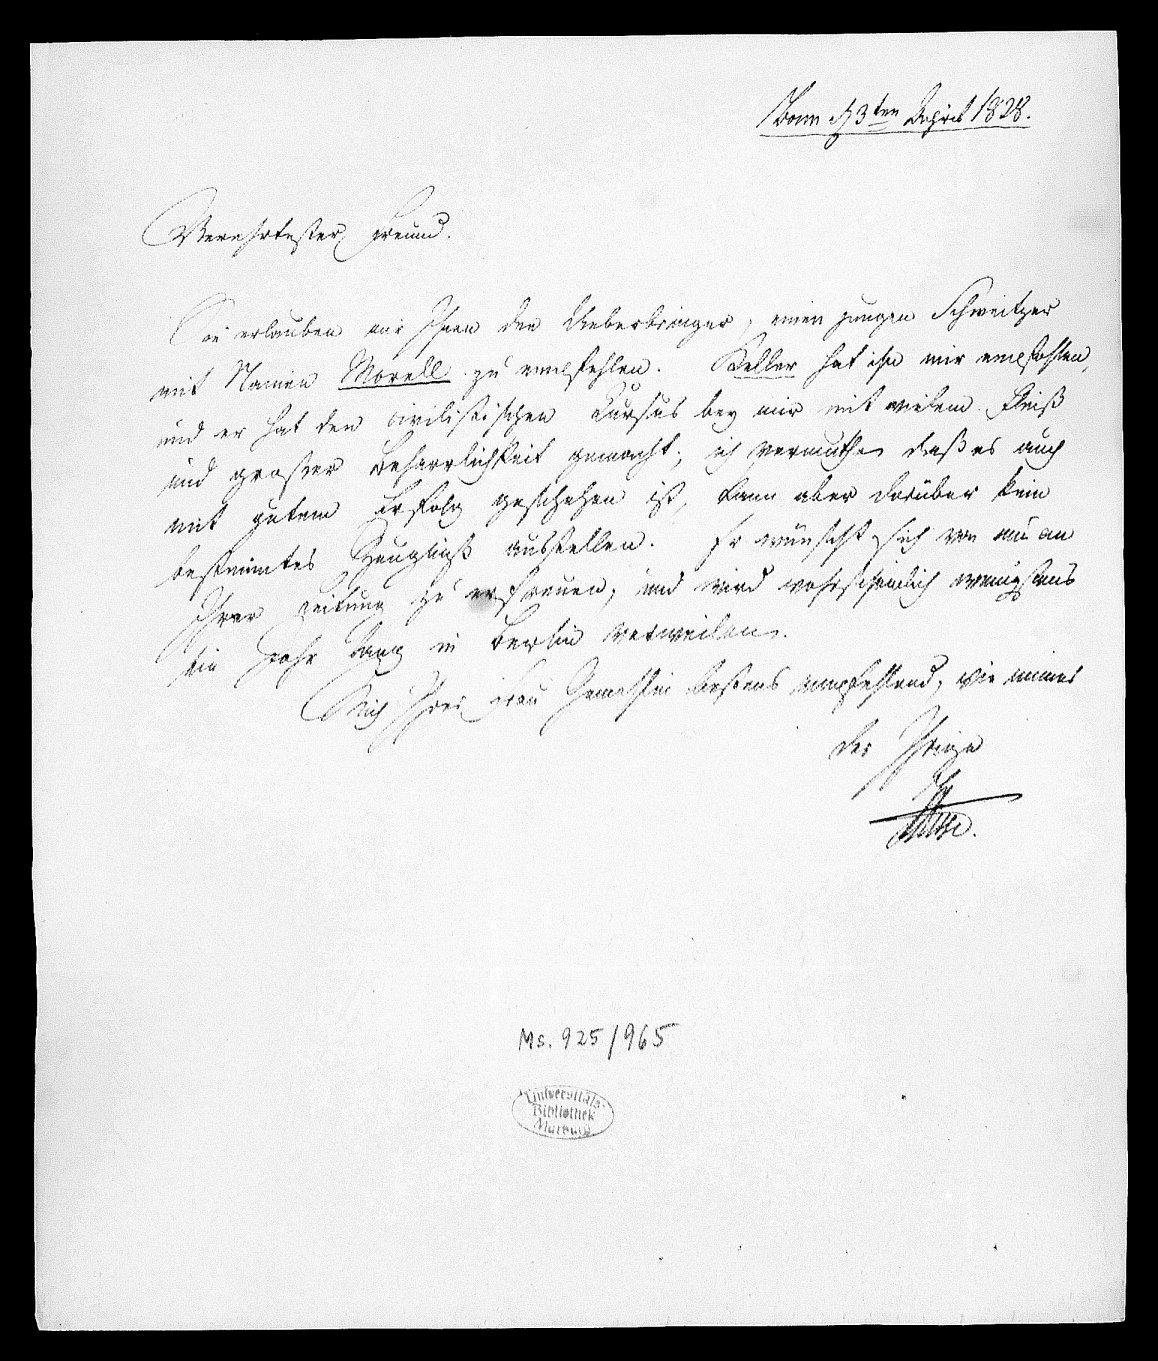 Bonn d 3ten April 1828.
Verehrtester Freund.
Sie erlauben mir Ihnen den Ueberbringer, einen jungen Schweitzer
mit Namen Morell zu empfehlen. Keller hat ihn mir empfohlen,
und er hat den civilistischen Cursus bey mir mit vielem Fleiß
und großer Beharrlichkeit gemacht; ich vermuthe daß es auch
mit gutem Erfolg geschehen ist, kann aber darüber kein
bestimmtes Zeugniß ausstellen. Er wünscht sich von nun an
Ihrer Leitung zu erfreuen, und wird wahrscheinlich wenigstens
ein Jahr lang in Berlin verweilen.
Mich Ihrer Frau Gemahlin bestens empfehlend, wie immer
der Ihrige
Ms. 925/965
Universitäts-
Bibliothek
Marburg